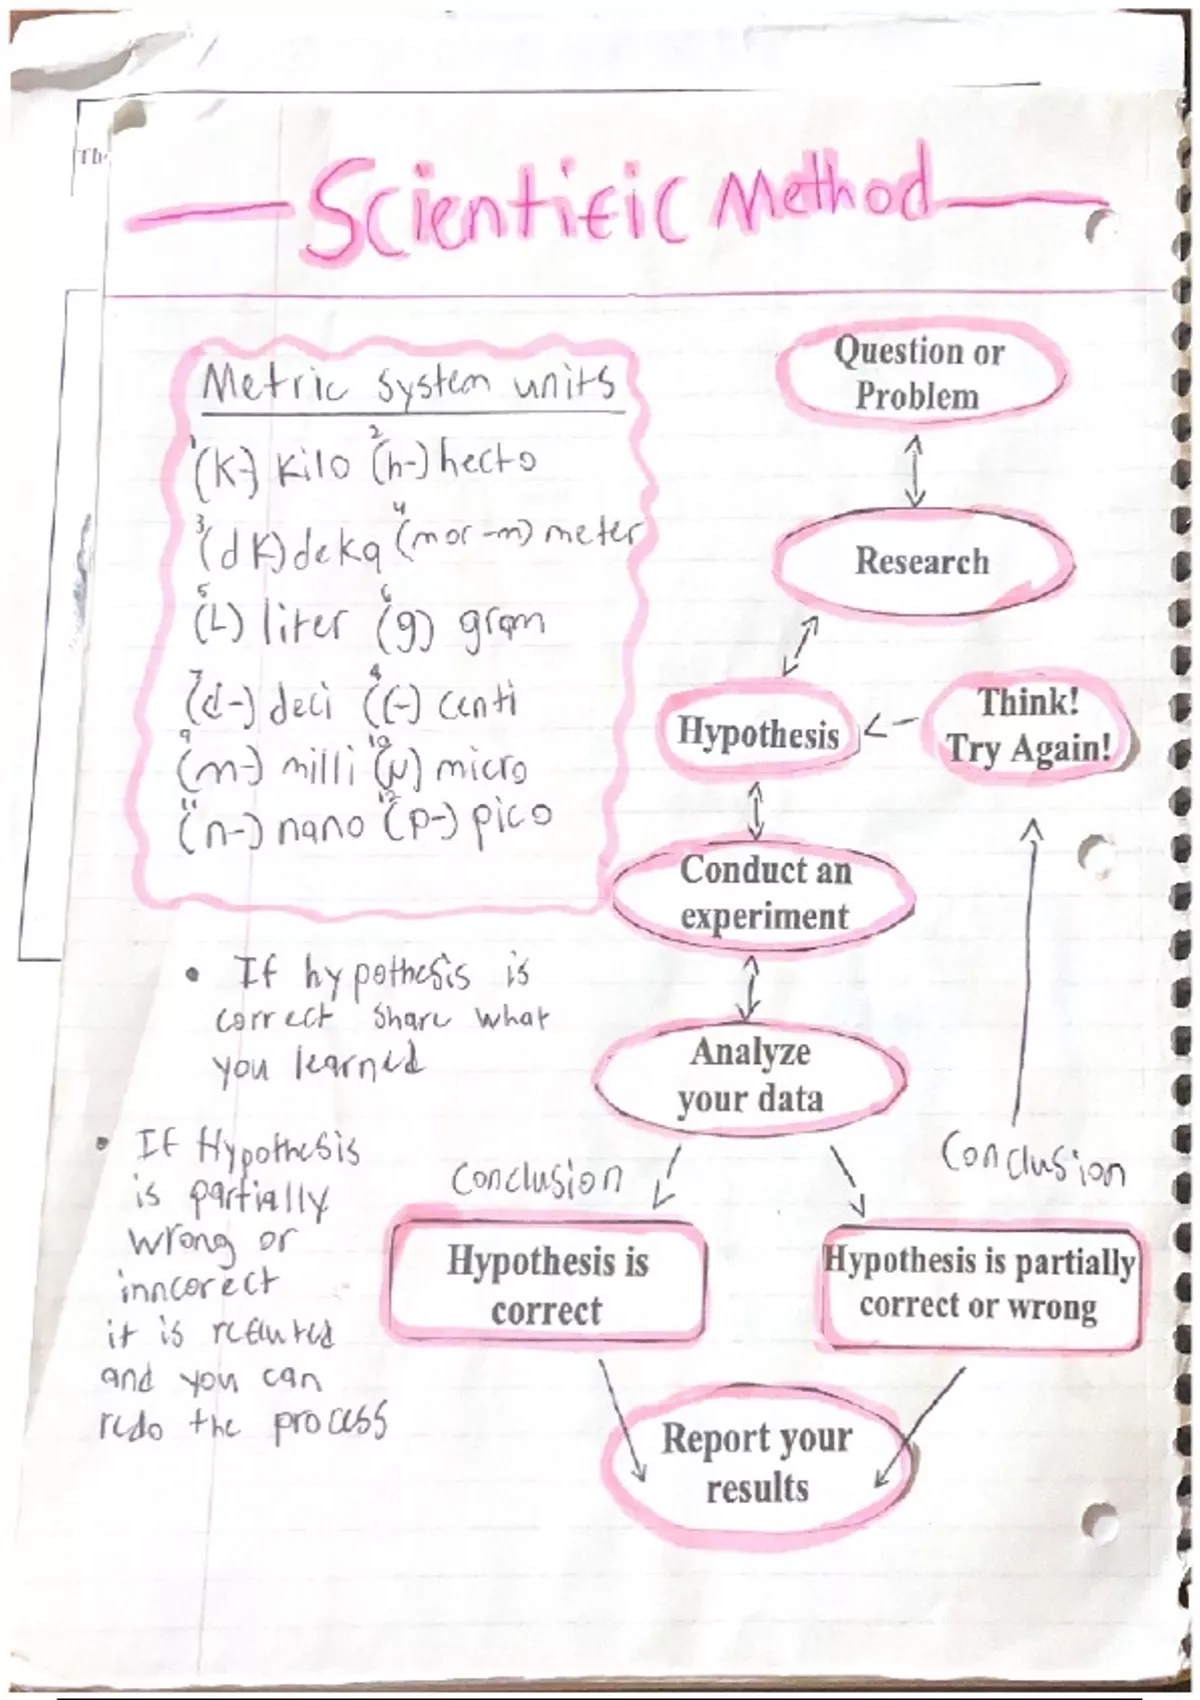 Th
Scientific Method
Metric system units
1 (K-) kilo 2 (h-) hecto
3 (dK) deka 4 (m or -m) meter
5 (L) liter 6 (g) gram
7 (d-) deci (c-) centi
9 (m-) milli 10 (μ) micro
11 (n-) nano 12 (p-) pico
• If hypothesis is
correct share what
you learned
• If Hypothesis
is partially
wrong or
inncorect
it is refuted
and you can
redo the process
Question or
Problem
Research
Hypothesis
Think!
Try Again!
Conduct an
experiment
Analyze
your data
Conclusion
Conclusion
Hypothesis is
correct
Hypothesis is partially
correct or wrong
Report your
results